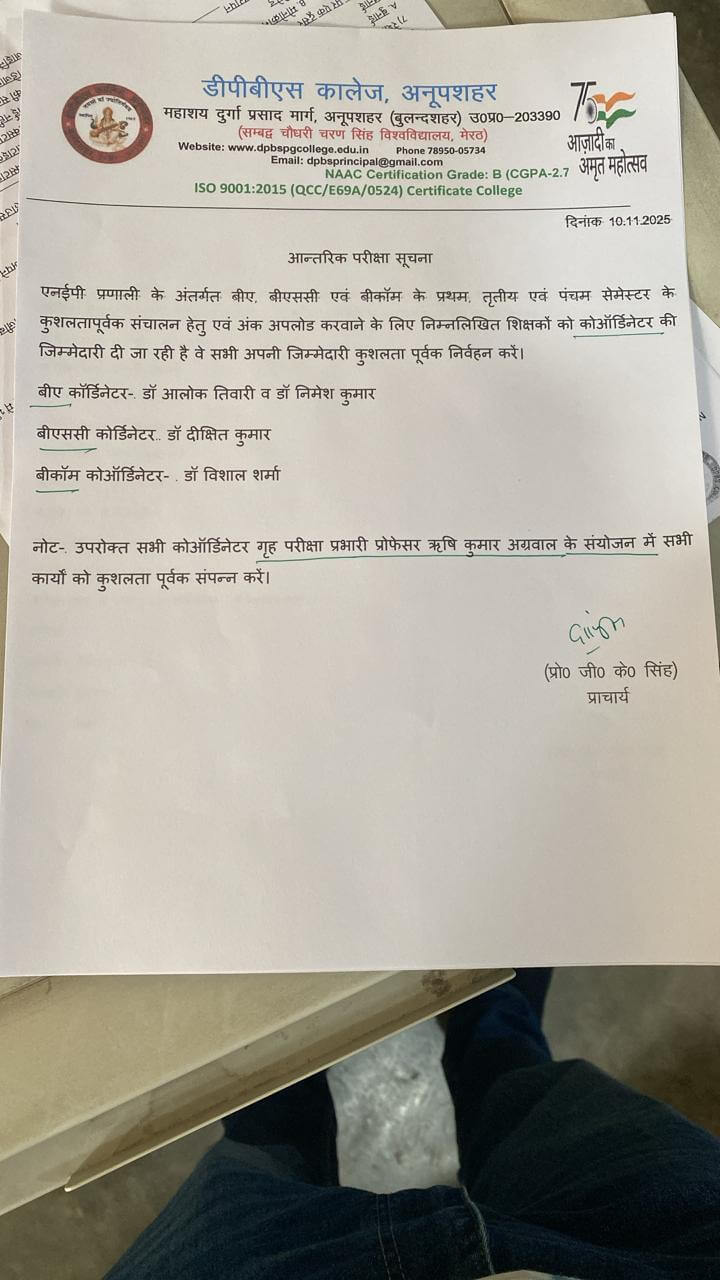 डीपीबीएस कालेज, अनूपशहर
महाशय दुर्गा प्रसाद मार्ग, अनूपशहर (बुलन्दशहर) उ0प्र0–203390
(सम्बद्व चौधरी चरण सिंह विश्वविद्यालय, मेरठ)
Website: www.dpbspgcollege.edu.in Phone 78950-05734
Email: dpbsprincipal@gmail.com
NAAC Certification Grade: B (CGPA-2.7
ISO 9001:2015 (QCC/E69A/0524) Certificate College
75
आज़ादी का
अमृत महोत्सव
दिनांक 10.11.2025
आन्तरिक परीक्षा सूचना
एनईपी प्रणाली के अंतर्गत बीए, बीएससी एवं बीकॉम के प्रथम, तृतीय एवं पंचम सेमेस्टर के
कुशलतापूर्वक संचालन हेतु एवं अंक अपलोड करवाने के लिए निम्नलिखित शिक्षकों को कोऑर्डिनेटर की
जिम्मेदारी दी जा रही है वे सभी अपनी जिम्मेदारी कुशलता पूर्वक निर्वहन करें।
बीए कॉर्डिनेटर-. डॉ आलोक तिवारी व डॉ निमेश कुमार
बीएससी कोर्डिनेटर.. डॉ दीक्षित कुमार
बीकॉम कोऑर्डिनेटर- . डॉ विशाल शर्मा
नोट-. उपरोक्त सभी कोऑर्डिनेटर गृह परीक्षा प्रभारी प्रोफेसर ऋषि कुमार अग्रवाल के संयोजन में सभी
कार्यों को कुशलता पूर्वक संपन्न करें।
(प्रो0 जी0 के0 सिंह)
प्राचार्य